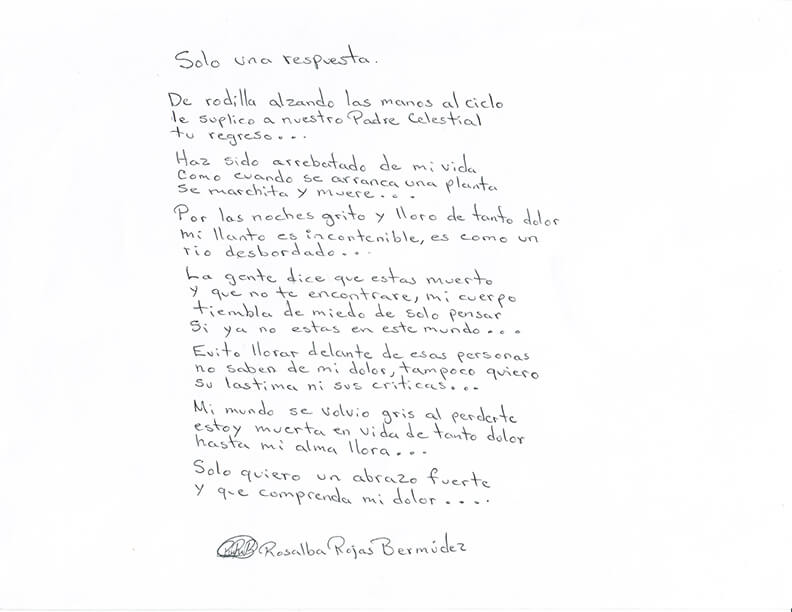 Solo una respuesta.
De rodilla alzando las manos al cielo
le suplico a nuestro Padre Celestial
tu regreso...
Haz sido arrebatado de mi vida
como cuando se arranca una planta
se marchita y muere...
Por las noches grito y lloro de tanto dolor
mi llanto es incontenible, es como un
rio desbordado...
La gente dice que estas muerto
y que no te encontrare, mi cuerpo
tiembla de miedo de solo pensar
Si ya no estas en este mundo...
Evito llorar delante de esas personas
no saben de mi dolor, tampoco quiero
su lastima ni sus criticas...
Mi mundo se volvio gris al perderte
estoy muerta en vida de tanto dolor
hasta mi alma llora...
Solo quiero un abrazo fuerte
y que comprenda mi dolor....
Rosalba Rojas Bermúdez